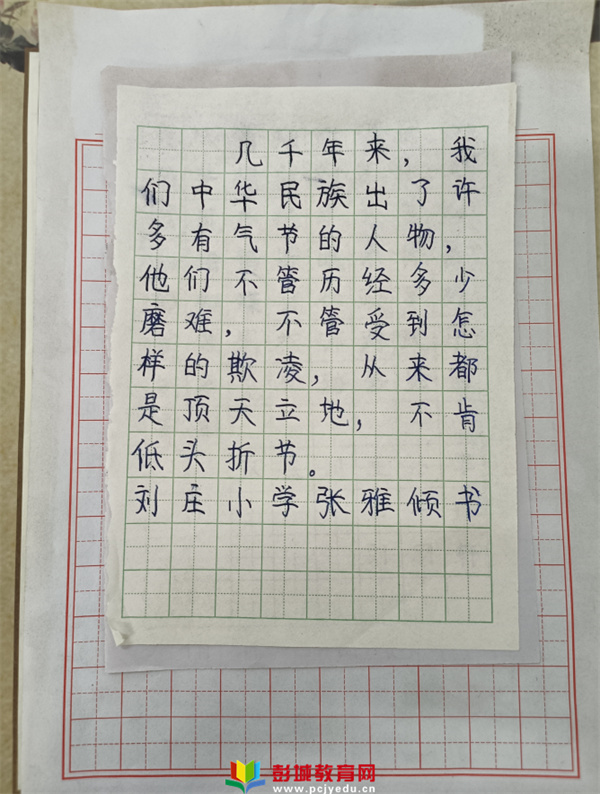 几千年来，我
们中华民族出了许
多有气节的人物，
他们不管历经多少
磨难，不管受到怎
样的欺凌，从来都
是顶天立地，不肯
低头折节。
刘庄小学张雅倾书
彭城教育网
www.pcjyedu.cn